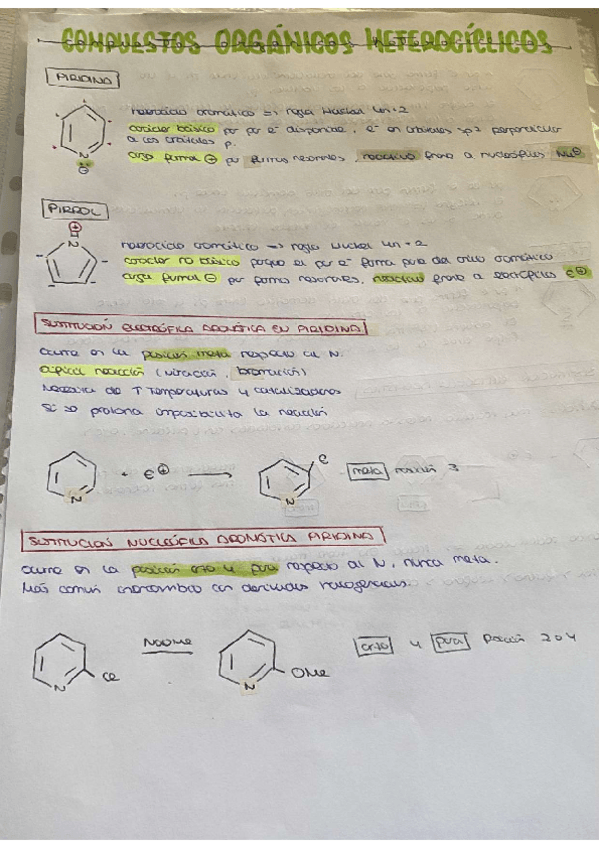 COMPUESTOS ORGÁNICOS HETEROCÍCLICOS
PIRIDINA
heterociclo aromático => regla Huckel 4n+2
carácter básico por par e⁻ disponible, e⁻ en orbitales sp2 perpendicular
a los orbitales p.
carga formal ⊖ por formas resonantes, reactivo frente a nucleófilos Nu⊖
N
⊖
PIRROL
⊕
N
heterociclo aromático => regla Huckel 4n+2
carácter no básico porque el par e⁻ forma parte del ciclo aromático
carga formal ⊖ por formas resonantes, reactivo frente a electrófilos e⊕
SUSTITUCIÓN ELECTRÓFILA AROMÁTICA EN PIRIDINA
ocurre en la posición meta respecto al N.
difícil reacción (nitración, bromación)
Necesita de ↑ Temperaturas y catalizadores
Si se protona imposibilita la reacción
N + e⊕ → N e meta posición 3
SUSTITUCIÓN NUCLEÓFILA AROMÁTICA PIRIDINA
ocurre en la posición orto y para respecto al N, nunca meta.
Más común encontrarnos con derivados halogenados.
N Cl NaOMe N OMe orto y para Posición 2 o 4